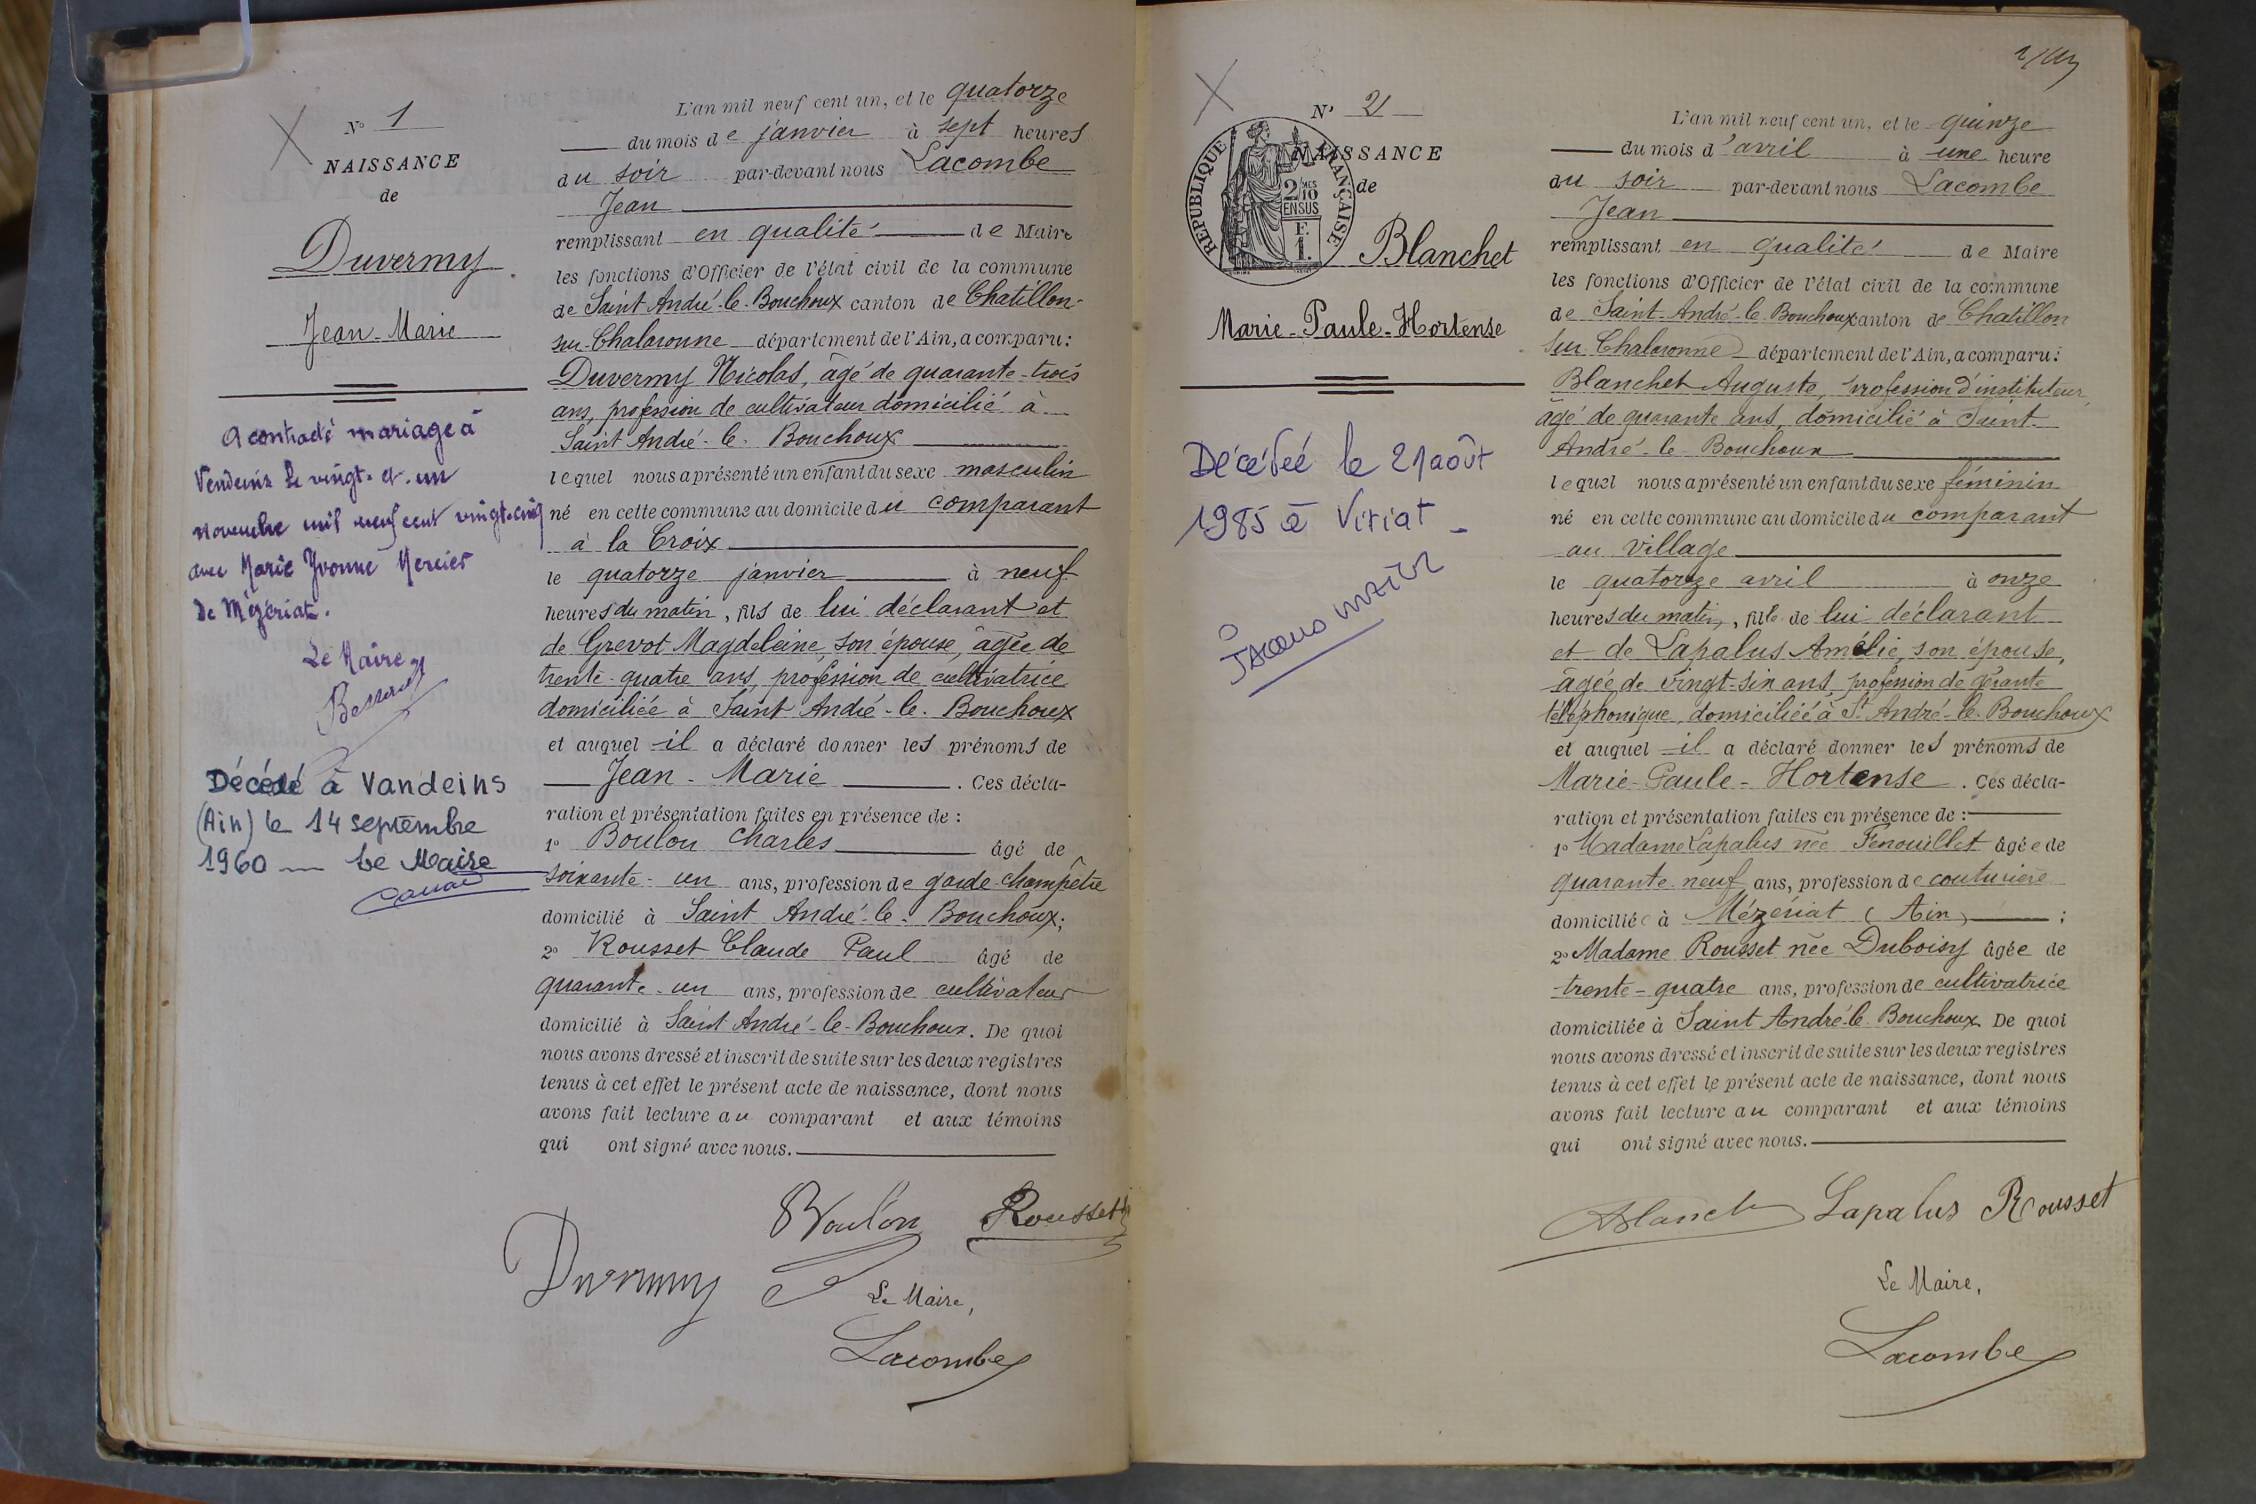 N° 1
NAISSANCE
de
Duvermy
Jean-Marie
A contracté mariage à
Vendeins le vingt-et-un
novembre mil neuf cent vingt-cinq
avec Marie Yvonne Mercier
de Mézériat.
Le Maire
Décédé à Vandeins
(Ain) le 14 septembre
1960 — Le Maire
L'an mil neuf cent un, et le quatorze
du mois de janvier à sept heures
du soir par-devant nous Lacombe
Jean
remplissant en qualité de Maire
les fonctions d'Officier de l'état civil de la commune
de Saint André-le-Bouchoux canton de Chatillon-
sur-Chalaronne département de l'Ain, a comparu:
Duvermy Nicolas, âgé de quarante-trois
ans, profession de cultivateur domicilié à
Saint André-le-Bouchoux
lequel nous a présenté un enfant du sexe masculin
né en cette commune au domicile du comparant
à la Croix
le quatorze janvier à neuf
heures du matin, fils de lui déclarant et
de Grevot Magdeleine, son épouse, âgée de
trente-quatre ans, profession de cultivatrice
domiciliée à Saint André-le-Bouchoux
et auquel il a déclaré donner les prénoms de
Jean-Marie. Ces décla-
ration et présentation faites en présence de :
1° Boulon Charles âgé de
soixante-un ans, profession de garde-champêtre
domicilié à Saint André-le-Bouchoux;
2° Rousset Claude Paul âgé de
quarante-un ans, profession de cultivateur
domicilié à Saint André-le-Bouchoux. De quoi
nous avons dressé et inscrit de suite sur les deux registres
tenus à cet effet le présent acte de naissance, dont nous
avons fait lecture au comparant et aux témoins
qui ont signé avec nous.
Boulon Rousset
Duvermy
Le Maire,
Lacombe
N° 2
NAISSANCE
de
RÉPUBLIQUE FRANÇAISE
2/10MES
EN SUS
F.
1.
Blanchet
Marie-Paule-Hortense
Décédée le 21 août
1985 à Viriat
L'an mil neuf cent un, et le quinze
du mois d'avril à une heure
du soir par-devant nous Lacombe
Jean
remplissant en qualité de Maire
les fonctions d'Officier de l'état civil de la commune
de Saint-André-le-Bouchoux canton de Chatillon
sur Chalaronne département de l'Ain, a comparu:
Blanchet Auguste, profession d'instituteur,
âgé de quarante ans, domicilié à Saint-
André-le-Bouchoux
lequel nous a présenté un enfant du sexe féminin
né en cette commune au domicile du comparant
au village
le quatorze avril à onze
heures du matin, fille de lui déclarant
et de Lapalus Amélie, son épouse,
âgée de vingt-six ans, profession de gérante
téléphonique, domiciliée à St André-le-Bouchoux
et auquel il a déclaré donner les prénoms de
Marie-Paule-Hortense. Ces décla-
ration et présentation faites en présence de :
1° Madame Lapalus née Fenouillet âgée de
quarante-neuf ans, profession de couturière
domiciliée à Mézériat (Ain) ;
2° Madame Rousset née Duboisy âgée de
trente-quatre ans, profession de cultivatrice
domiciliée à Saint André-le-Bouchoux. De quoi
nous avons dressé et inscrit de suite sur les deux registres
tenus à cet effet le présent acte de naissance, dont nous
avons fait lecture au comparant et aux témoins
qui ont signé avec nous.
Blanchet Lapalus Rousset
Le Maire,
Lacombe